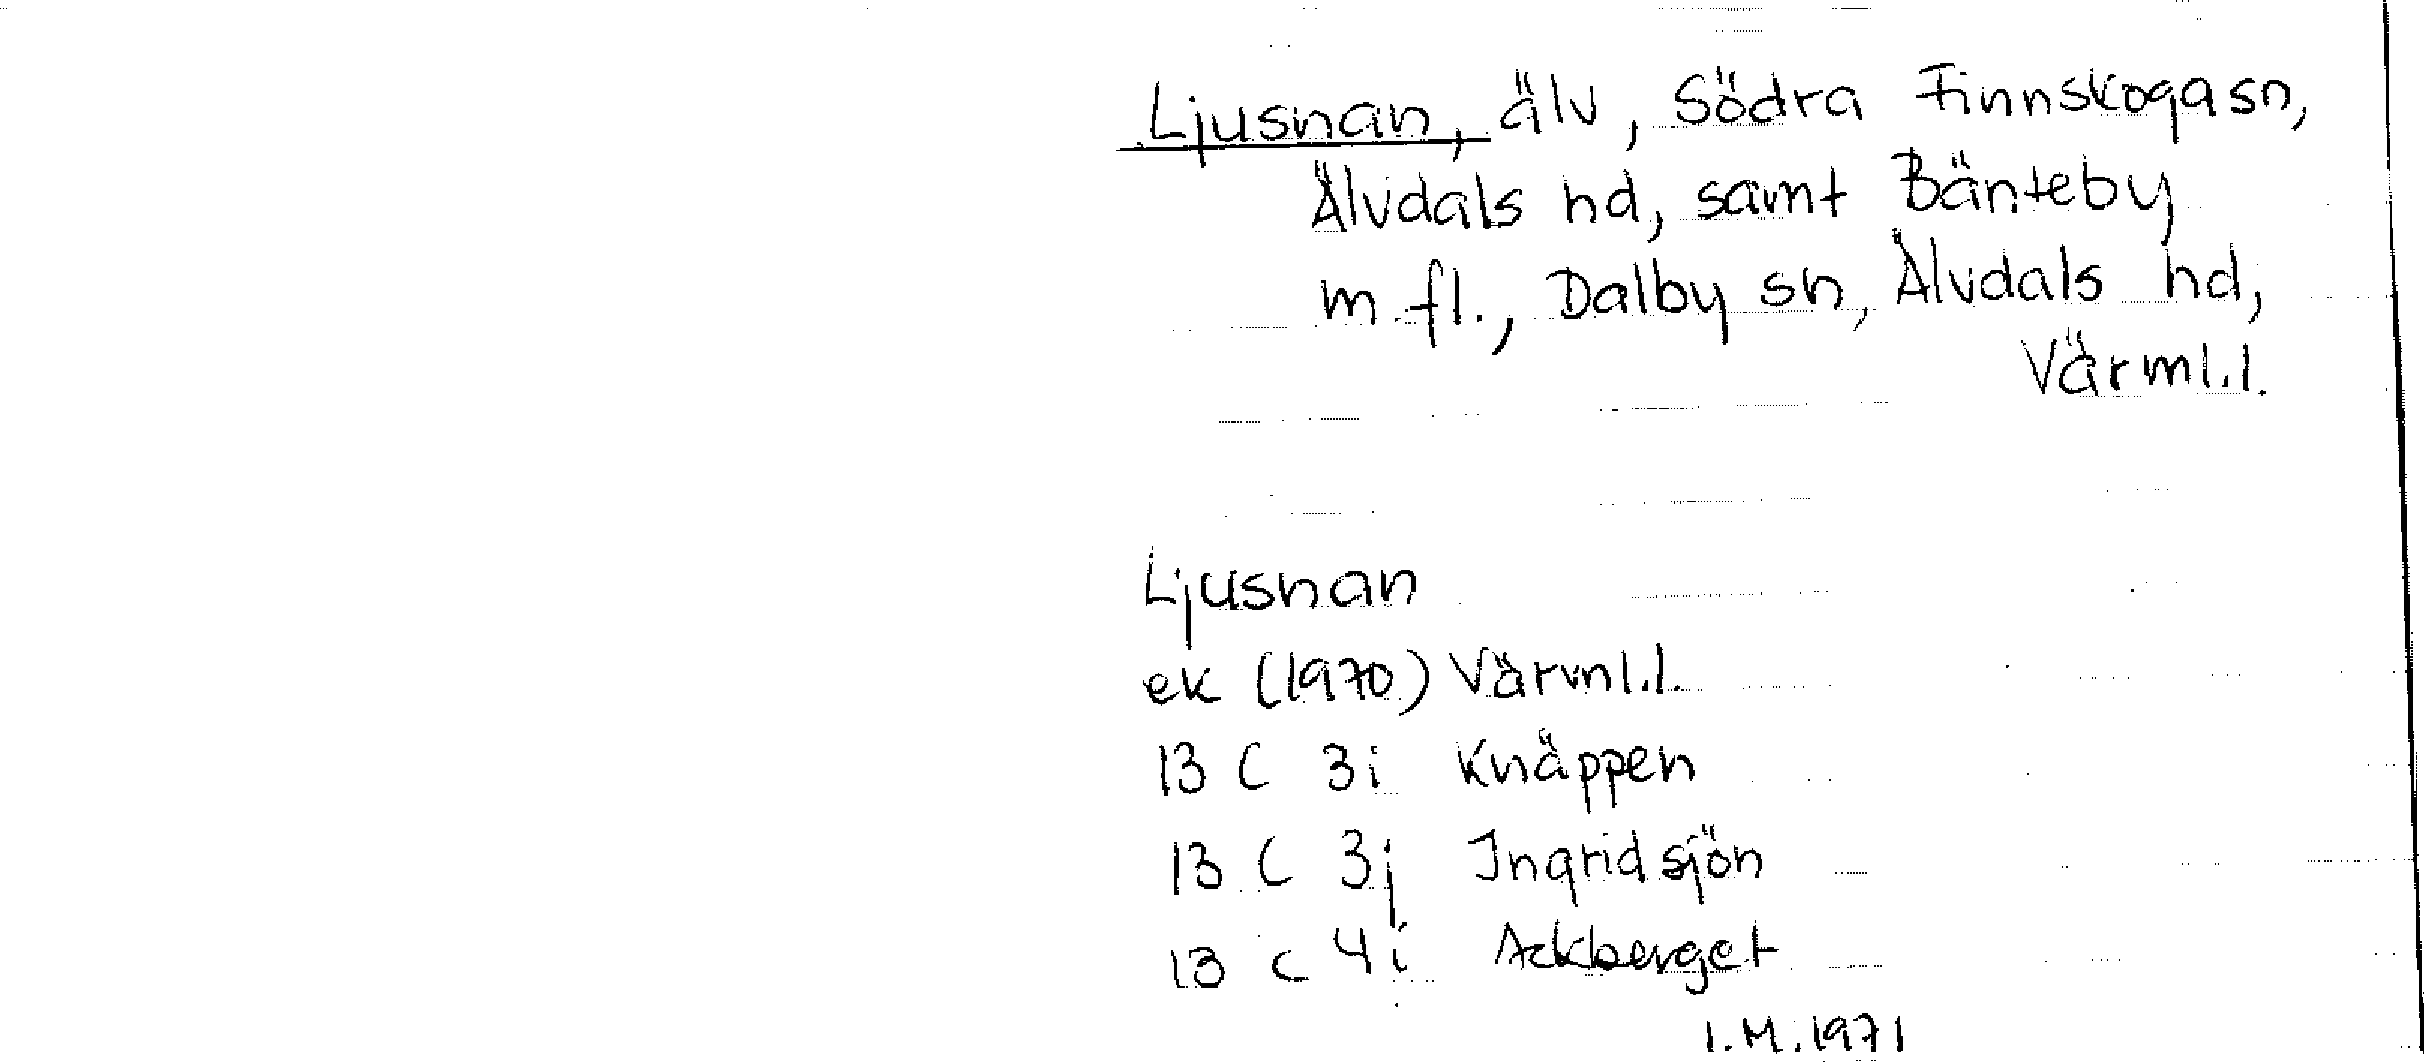 Ljusnan, älv, Södra Finnskoga sn,
Älvdals hd, samt Bänteby
m fl., Dalby sn, Älvdals hd,
Värml.l.
Ljusnan
ek (1970) Värml.l.
13 C 3i Knäppen
13 C 3j Ingridsjön
13 c 4i Ackberget
I.M. 1971